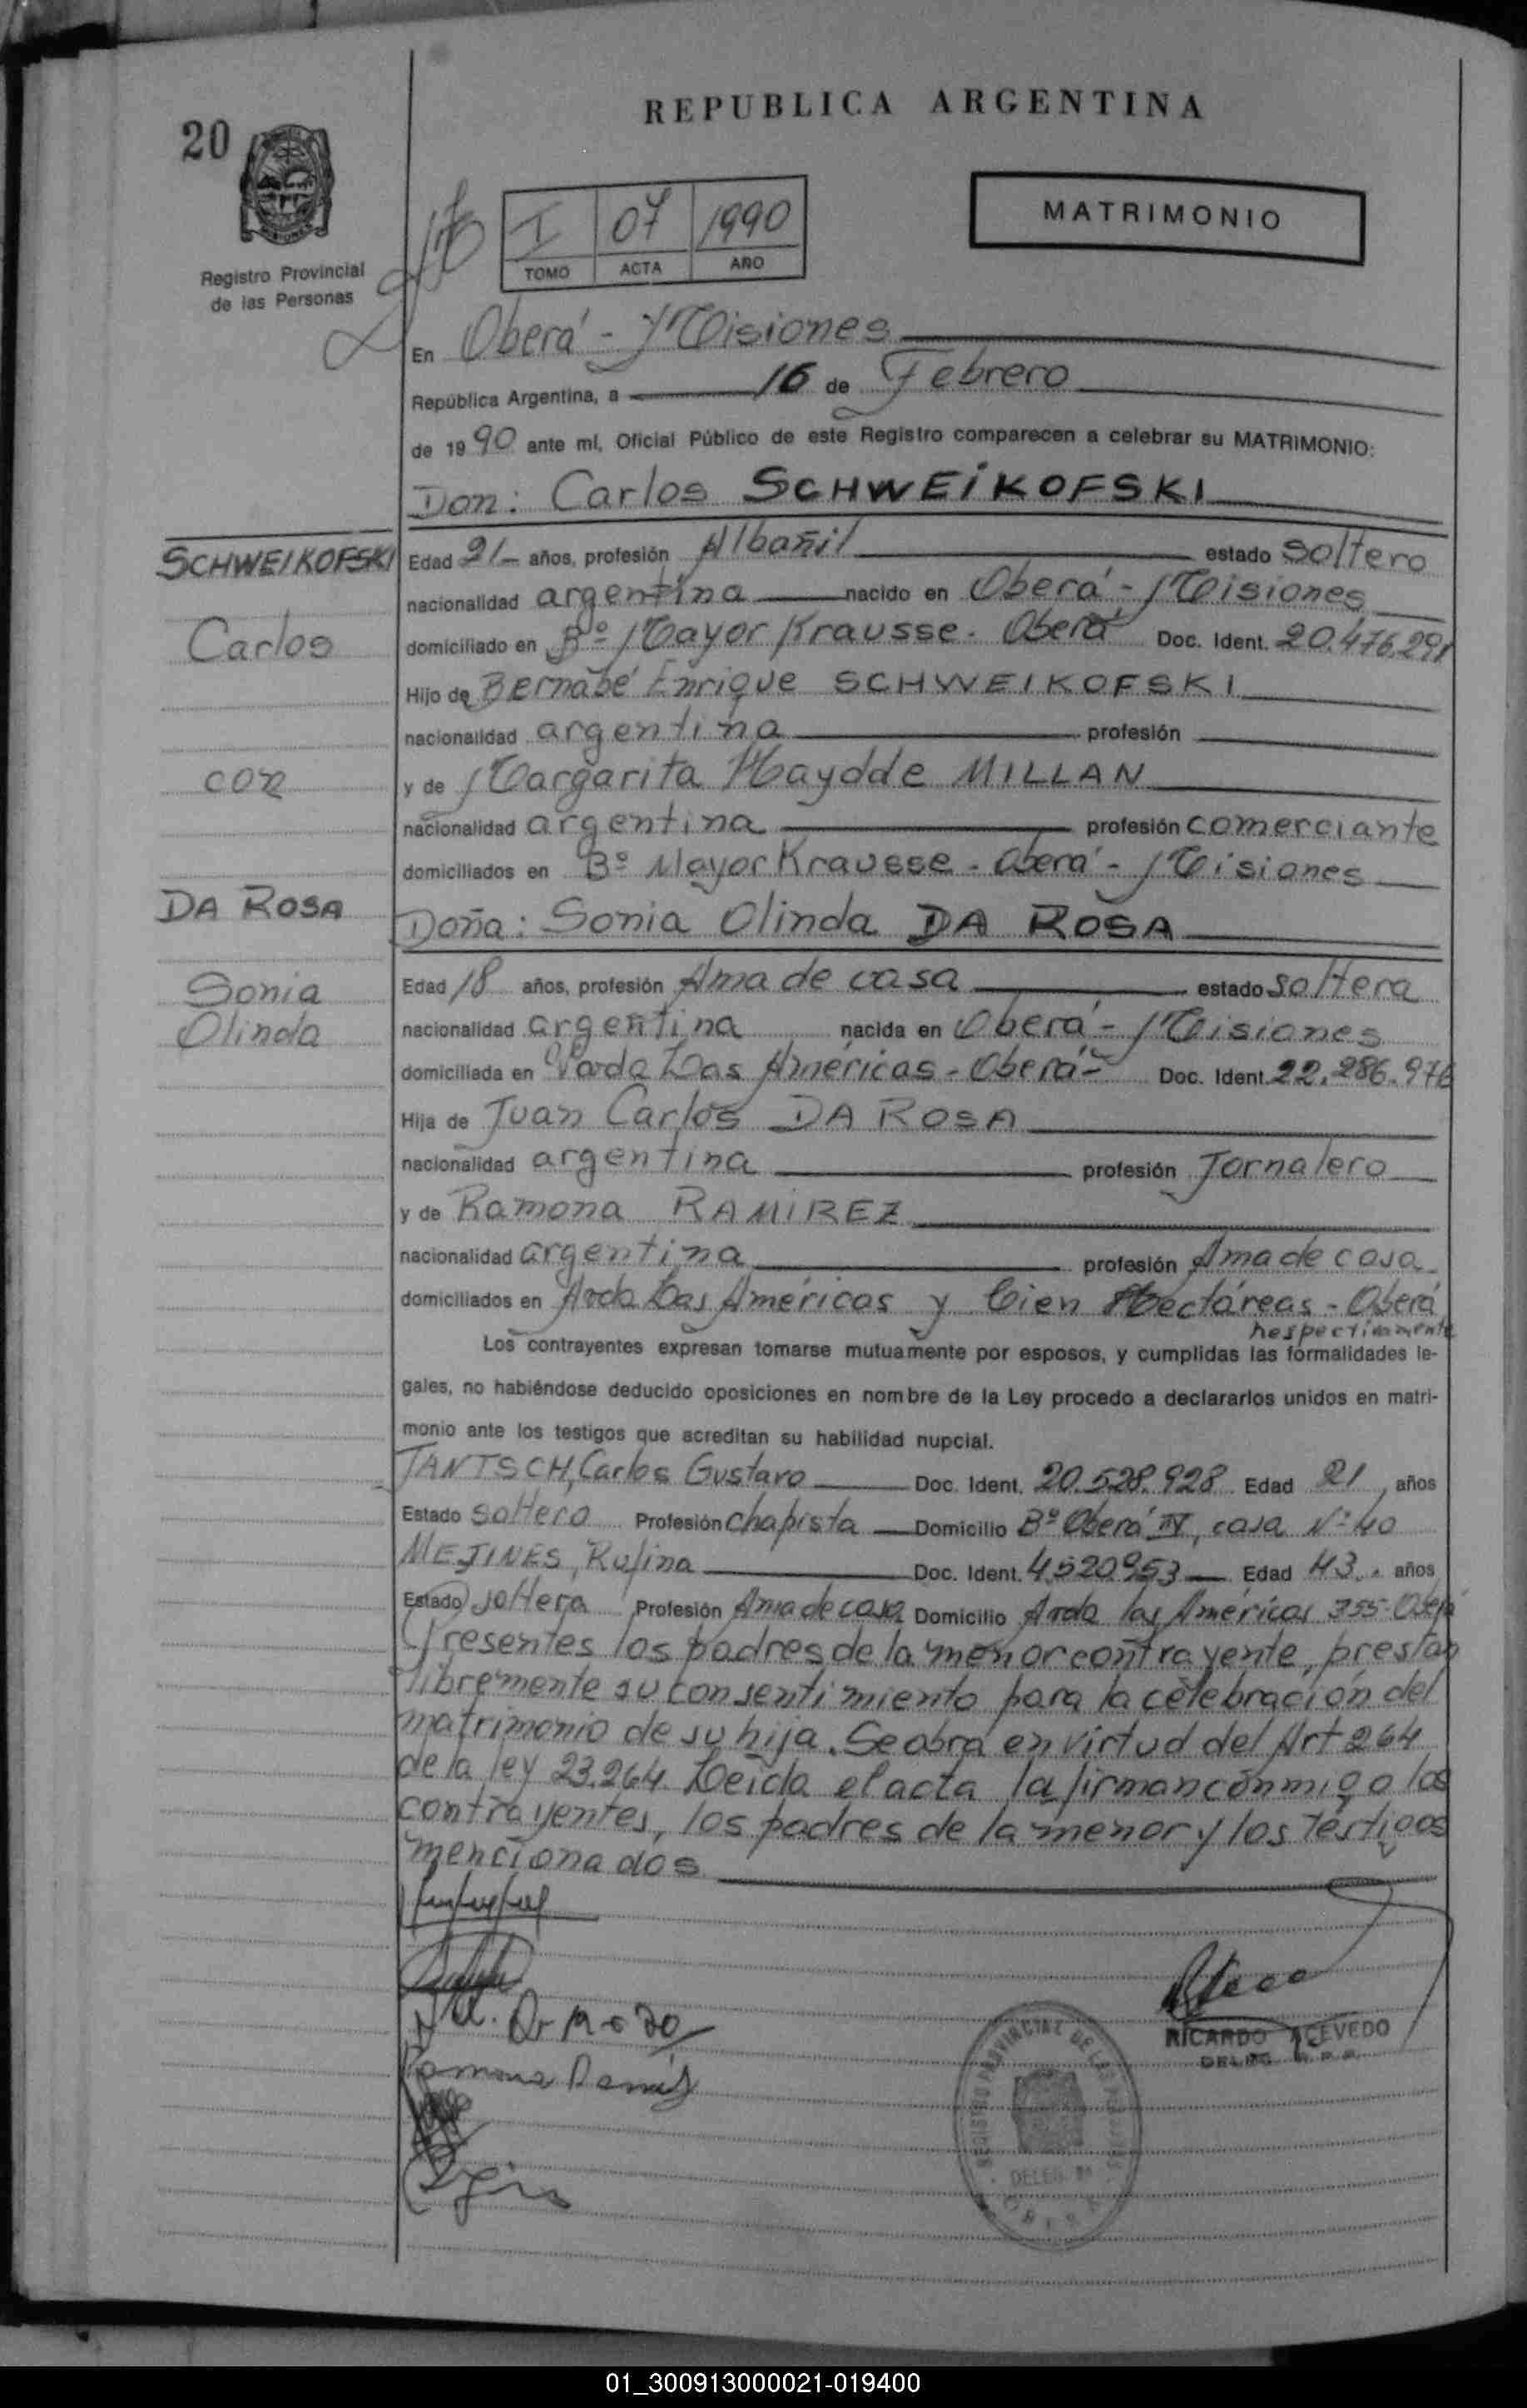 REPUBLICA ARGENTINA
20
MISIONES
Registro Provincial
de las Personas
I 07 1990
TOMO ACTA AÑO
MATRIMONIO
En Oberá - Misiones
República Argentina, a 16 de Febrero
de 1990 ante mí, Oficial Público de este Registro comparecen a celebrar su MATRIMONIO:
Don: Carlos SCHWEIKOFSKI
SCHWEIKOFSKI
Carlos
con
DA ROSA
Sonia
Olinda
Edad 21 años, profesión Albañil estado soltero
nacionalidad argentina nacido en Oberá - Misiones
domiciliado en Bº Mayor Krausse - Oberá Doc. Ident. 20.476.291
Hijo de Bernabé Enrique SCHWEIKOFSKI
nacionalidad argentina profesión
y de Margarita Haydde MILLAN
nacionalidad argentina profesión comerciante
domiciliados en Bº Mayor Krausse - Oberá - Misiones
Doña: Sonia Olinda DA ROSA
Edad 18 años, profesión Ama de casa estado soltera
nacionalidad argentina nacida en Oberá - Misiones
domiciliada en Las Américas - Oberá - Doc. Ident. 22.286.976
Hija de Juan Carlos DA ROSA
nacionalidad argentina profesión Jornalero
y de Ramona RAMIREZ
nacionalidad argentina profesión Ama de casa
domiciliados en Avda Las Américas y Cien Hectáreas - Oberá
respectivamente
Los contrayentes expresan tomarse mutuamente por esposos, y cumplidas las formalidades le-
gales, no habiéndose deducido oposiciones en nombre de la Ley procedo a declararlos unidos en matri-
monio ante los testigos que acreditan su habilidad nupcial.
JANTSCH, Carlos Gustavo Doc. Ident. 20.528.928 Edad 21 años
Estado soltero Profesión chapista Domicilio Bº Oberá IV, casa Nº 40
MEJINES, Rufina Doc. Ident. 4.520.953 Edad 43 años
Estado soltera Profesión Ama de casa Domicilio Avda las Américas 355 - Oberá
Presentes los padres de la menor contrayente, prestan
libremente su consentimiento para la celebración del
matrimonio de su hija. Se obra en virtud del Art 264
de la ley 23.264. Leída el acta la firman conmigo los
contrayentes, los padres de la menor y los testigos
mencionados
Ramona Ramirez
RICARDO ACEVEDO
DELEG. R.P.P.
REGISTRO PROVINCIAL DE LAS PERSONAS
DELEG.
OBERA
01_300913000021-019400